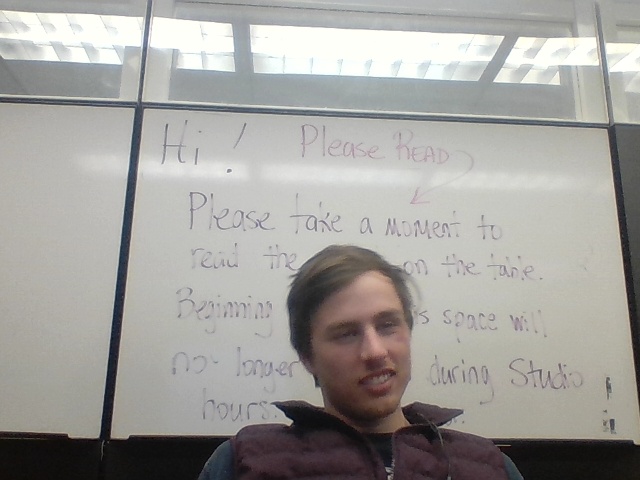 Hi! Please READ
Please take a moment to
read the on the table.
Beginning is space will
no longer during Studio
hours.